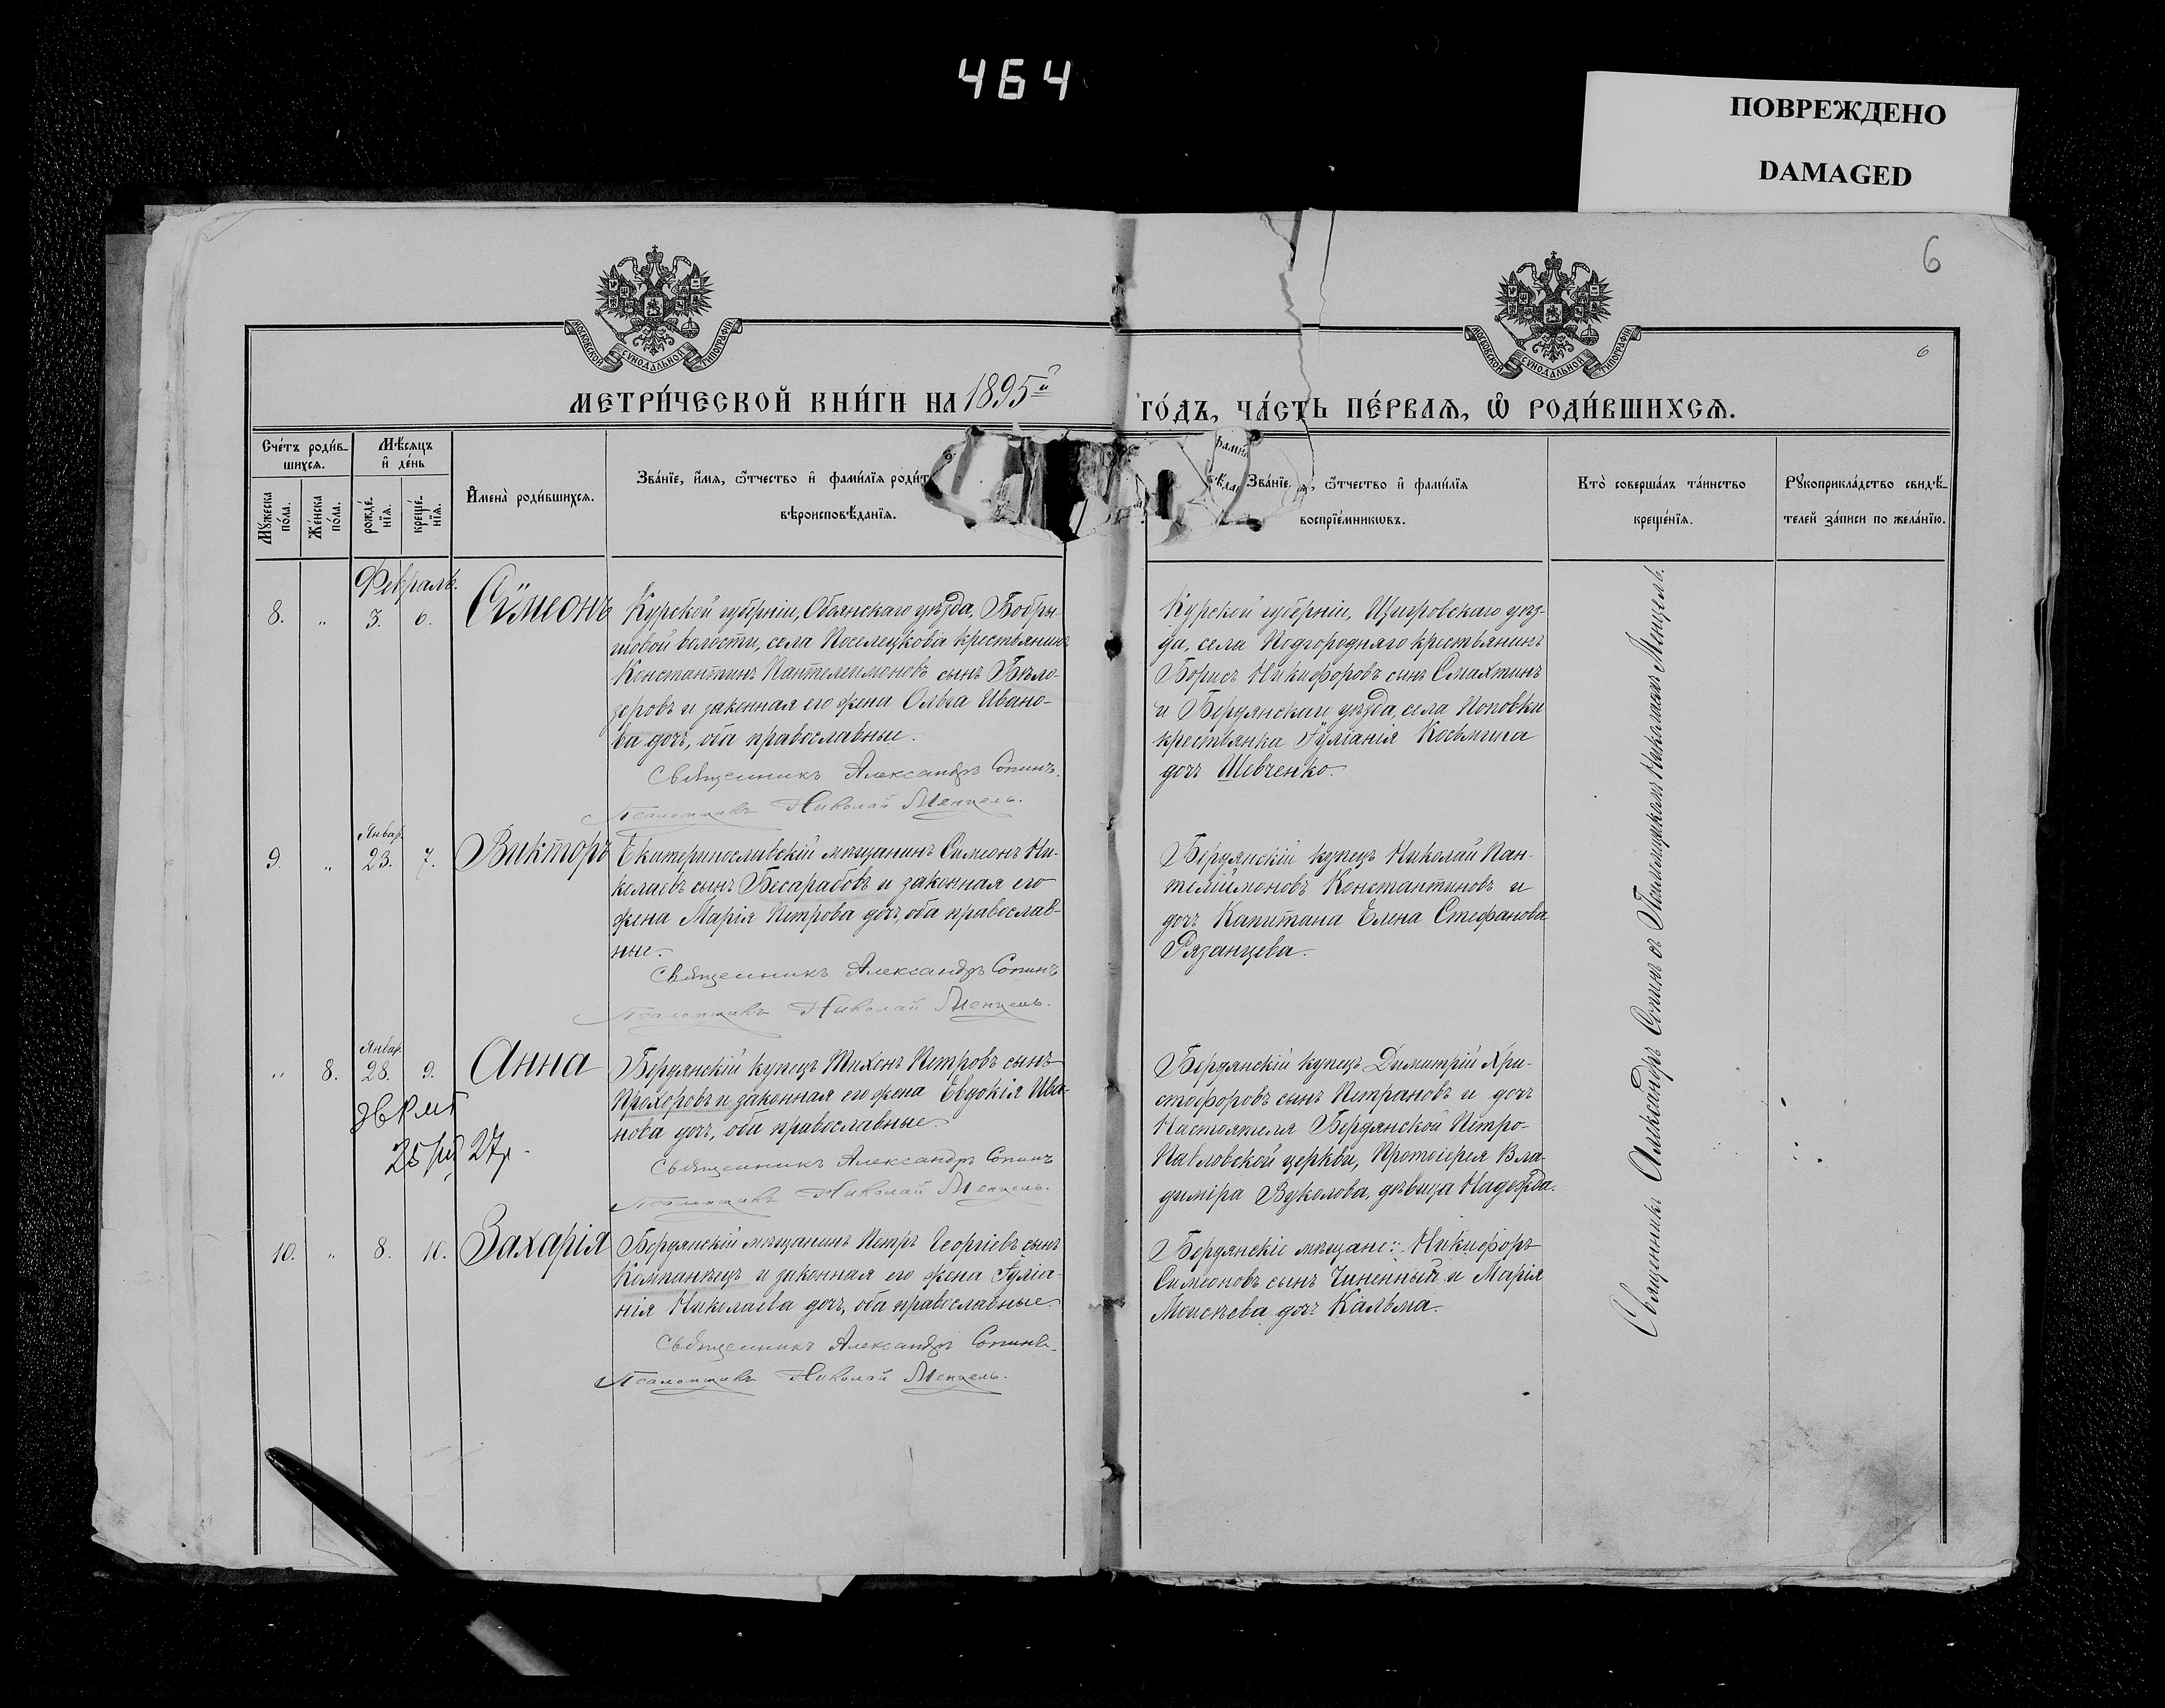 464
ПОВРЕЖДЕНО
DAMAGED
6
6
МОСКОВСКОЙ СУНОДАЛЬНОЙ ТИПОГРАФІИ
МОСКОВСКОЙ СУНОДАЛЬНОЙ ТИПОГРАФІИ
МЕТРИ́ЧЕСКОЙ КНИ́ГИ НА 1895й
ГО́ДЪ, ЧА́СТЬ ПЕ́РВАѦ, Ѡ҆ РОДИ́ВШИХСѦ.
Сче́тъ роди́в-
шихсѧ.
Мꙋ́жеска по́ла.
Же́нска по́ла.
Мѣ́сѧцъ
и҆ де́нь
рожде́нїѧ.
креще́нїѧ.
И҆мена̀ роди́вшихсѧ.
Зва́нїе, и҆́мѧ, ѻ҆́тчество и҆ фами́лїѧ роди́т
вѣроисповѣ́данїѧ.
Зва́нїе, ѻ҆́тчество и҆ фами́лїѧ
воспрїе́мникѡвъ.
Кто̀ соверша́лъ та́инство
креще́нїѧ.
Рꙋкоприкла́дство свидѣ́-
телей за́писи по жела́нїю.
Февраль.
8. „ 3. 6. Сѵмеонъ
Курской губерніи, Обоянскаго уѣзда, Бобры-
шовой волости, села Поселецкова крестьянинъ
Константинъ Пантелеимоновъ сынъ Бѣло-
зеровъ и законная его жена Ольга Ивано-
ва дочь, оба православные.
Священникъ Александръ Сопинъ.
Псаломщикъ Николай Менцель.
Курской губерніи, Щигровскаго уѣз-
да, села Подгородняго крестьянинъ
Борисъ Никифоровъ сынъ Смахтинъ
и Бердянскаго уѣзда, села Поповки
крестьянка Іуліанія Косьмина
дочь Шевченко.
Январ.
9. „ 23. 7. Викторъ
Екатеринославскій мѣщанинъ Симеонъ Ни-
колаевъ сынъ Бесарабовъ и законная его
жена Марія Петрова дочь, оба православ-
ные.
Священникъ Александръ Сопинъ
Псаломщикъ Николай Менцель.
Бердянскій купецъ Николай Пан-
телеимоновъ Константиновъ и
дочь Капитана Елена Стефанова
Рязанцева.
Январ.
„ 8. 28. 9. Анна
Бердянскій купецъ Тихонъ Петровъ сынъ
Прохоровъ и законная его жена Евдокія Ива-
нова дочь, оба православные.
Священникъ Александръ Сопинъ
Псаломщикъ Николай Менцель.
27г.
Бердянскій купецъ Димитрій Хри-
стофоровъ сынъ Петрановъ и дочь
Настоятеля Бердянской Петро-
Павловской церкви, Протоіерея Вла-
диміра Вуколова, дѣвица Надежда.
10. „ 8. 10. Захарія
Бердянскій мѣщанинъ Петръ Георгіевъ сынъ
Компанѣецъ и законная его жена Іуліа-
нія Николаева дочь, оба православные.
Священникъ Александръ Сопинъ.
Псаломщикъ Николай Менцель.
Бердянскіе мѣщане: Никифоръ
Симеоновъ сынъ Чиненный и Марія
Моисѣева дочь Кальма.
Священникъ Александръ Сопинъ съ Псаломщикомъ Николаемъ Менцель.